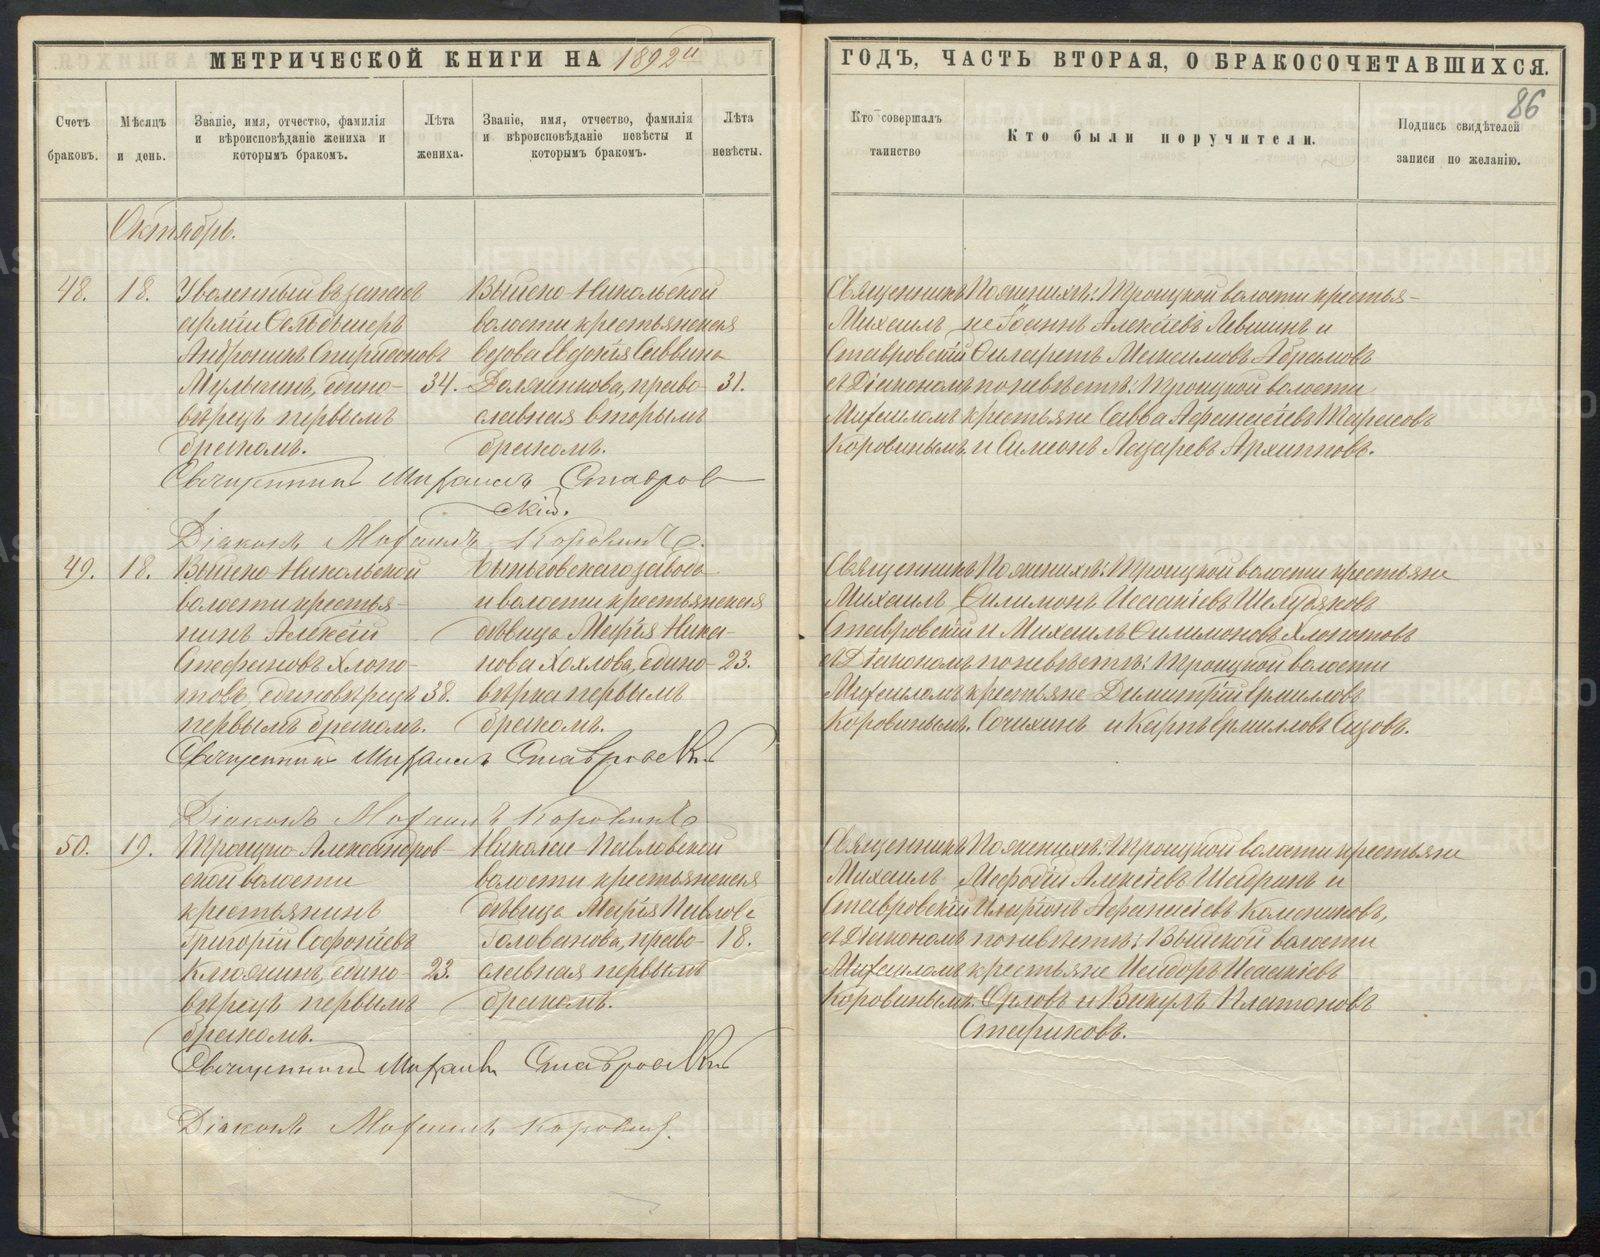 МЕТРИЧЕСКОЙ КНИГИ НА 1892й
ГОДЪ, ЧАСТЬ ВТОРАЯ, О БРАКОСОЧЕТАВШИХСЯ.
86
Счетъ браковъ.
Мѣсяцъ и день.
Званіе, имя, отчество, фамилія
и вѣроисповѣданіе жениха и
которымъ бракомъ.
Лѣта жениха.
Званіе, имя, отчество, фамилія
и вѣроисповѣданіе невѣсты и
которымъ бракомъ.
Лѣта невѣсты.
Кто совершалъ
таинство
Кто были поручители.
Подпись свидѣтелей
записи по желанію.
Октябрь.
48.
18.
Уволенный въ запасъ
арміи Фельдшеръ
Андроникъ Спиридоновъ
едино-
вѣрецъ первымъ
бракомъ.
34.
Выйско-Никольской
волости крестьянская
вдова Евдокія Саввина
право-
славная вторымъ
бракомъ.
31.
Священникъ
Михаилъ
Ставровскій
съ Діакономъ
Михаиломъ
Коровинымъ.
По женихѣ: Троицкой волости крестья-
не Іоаннъ Алексѣевъ Левшинъ и
Филаретъ Максимовъ Абрамовъ
по невѣстѣ: Троицкой волости
крестьяне Савва Афанасіевъ Тарасовъ
и Симеонъ Лазаревъ Архиповъ.
Священникъ Михаилъ Ставров
скій.
Діаконъ Михаилъ Коровинъ.
49.
18.
Выйско Никольской
волости крестья-
нинъ Алексій
Стефановъ Хлопо-
товъ, единовѣрецъ
первымъ бракомъ.
38.
Быньговскаго завода
и волости крестьянская
дѣвица Марія Ника-
нова Хохлова, едино-
вѣрка первымъ
бракомъ.
23.
Священникъ
Михаилъ
Ставровскій
съ Діакономъ
Михаиломъ
Коровинымъ.
По женихѣ: Троицкой волости крестьяне
Филимонъ Исаакіевъ Шелудяковъ
и Михаилъ Филимоновъ Хлопотовъ
по невѣстѣ: Троицкой волости
крестьяне Димитрій Ермиловъ
и Карпъ Ермиловъ Сизовъ.
Священникъ Михаилъ Ставровскій
Діаконъ Михаилъ Коровинъ
50.
19.
Троицко Александров-
ской волости
крестьянинъ
Григорій Софоніевъ
едино-
вѣрецъ первымъ
бракомъ.
23.
Николае-Павловской
волости крестьянская
дѣвица Марія Павлова
Голованова, право-
славная первымъ
бракомъ.
18.
Священникъ
Михаилъ
Ставровскій
съ Діакономъ
Михаиломъ
Коровинымъ.
По женихѣ: Троицкой волости крестьяне
Мефодій Алексѣевъ Шадринъ и
Иларіонъ Афанасіевъ
по невѣстѣ: Выйской волости
крестьяне Исидоръ Исаакіевъ
Орловъ и Викулъ Платоновъ
Стариковъ.
Священникъ Михаилъ Ставровскій
Діаконъ Михаилъ Коровинъ.
METRIKI.GASO-URAL.RU